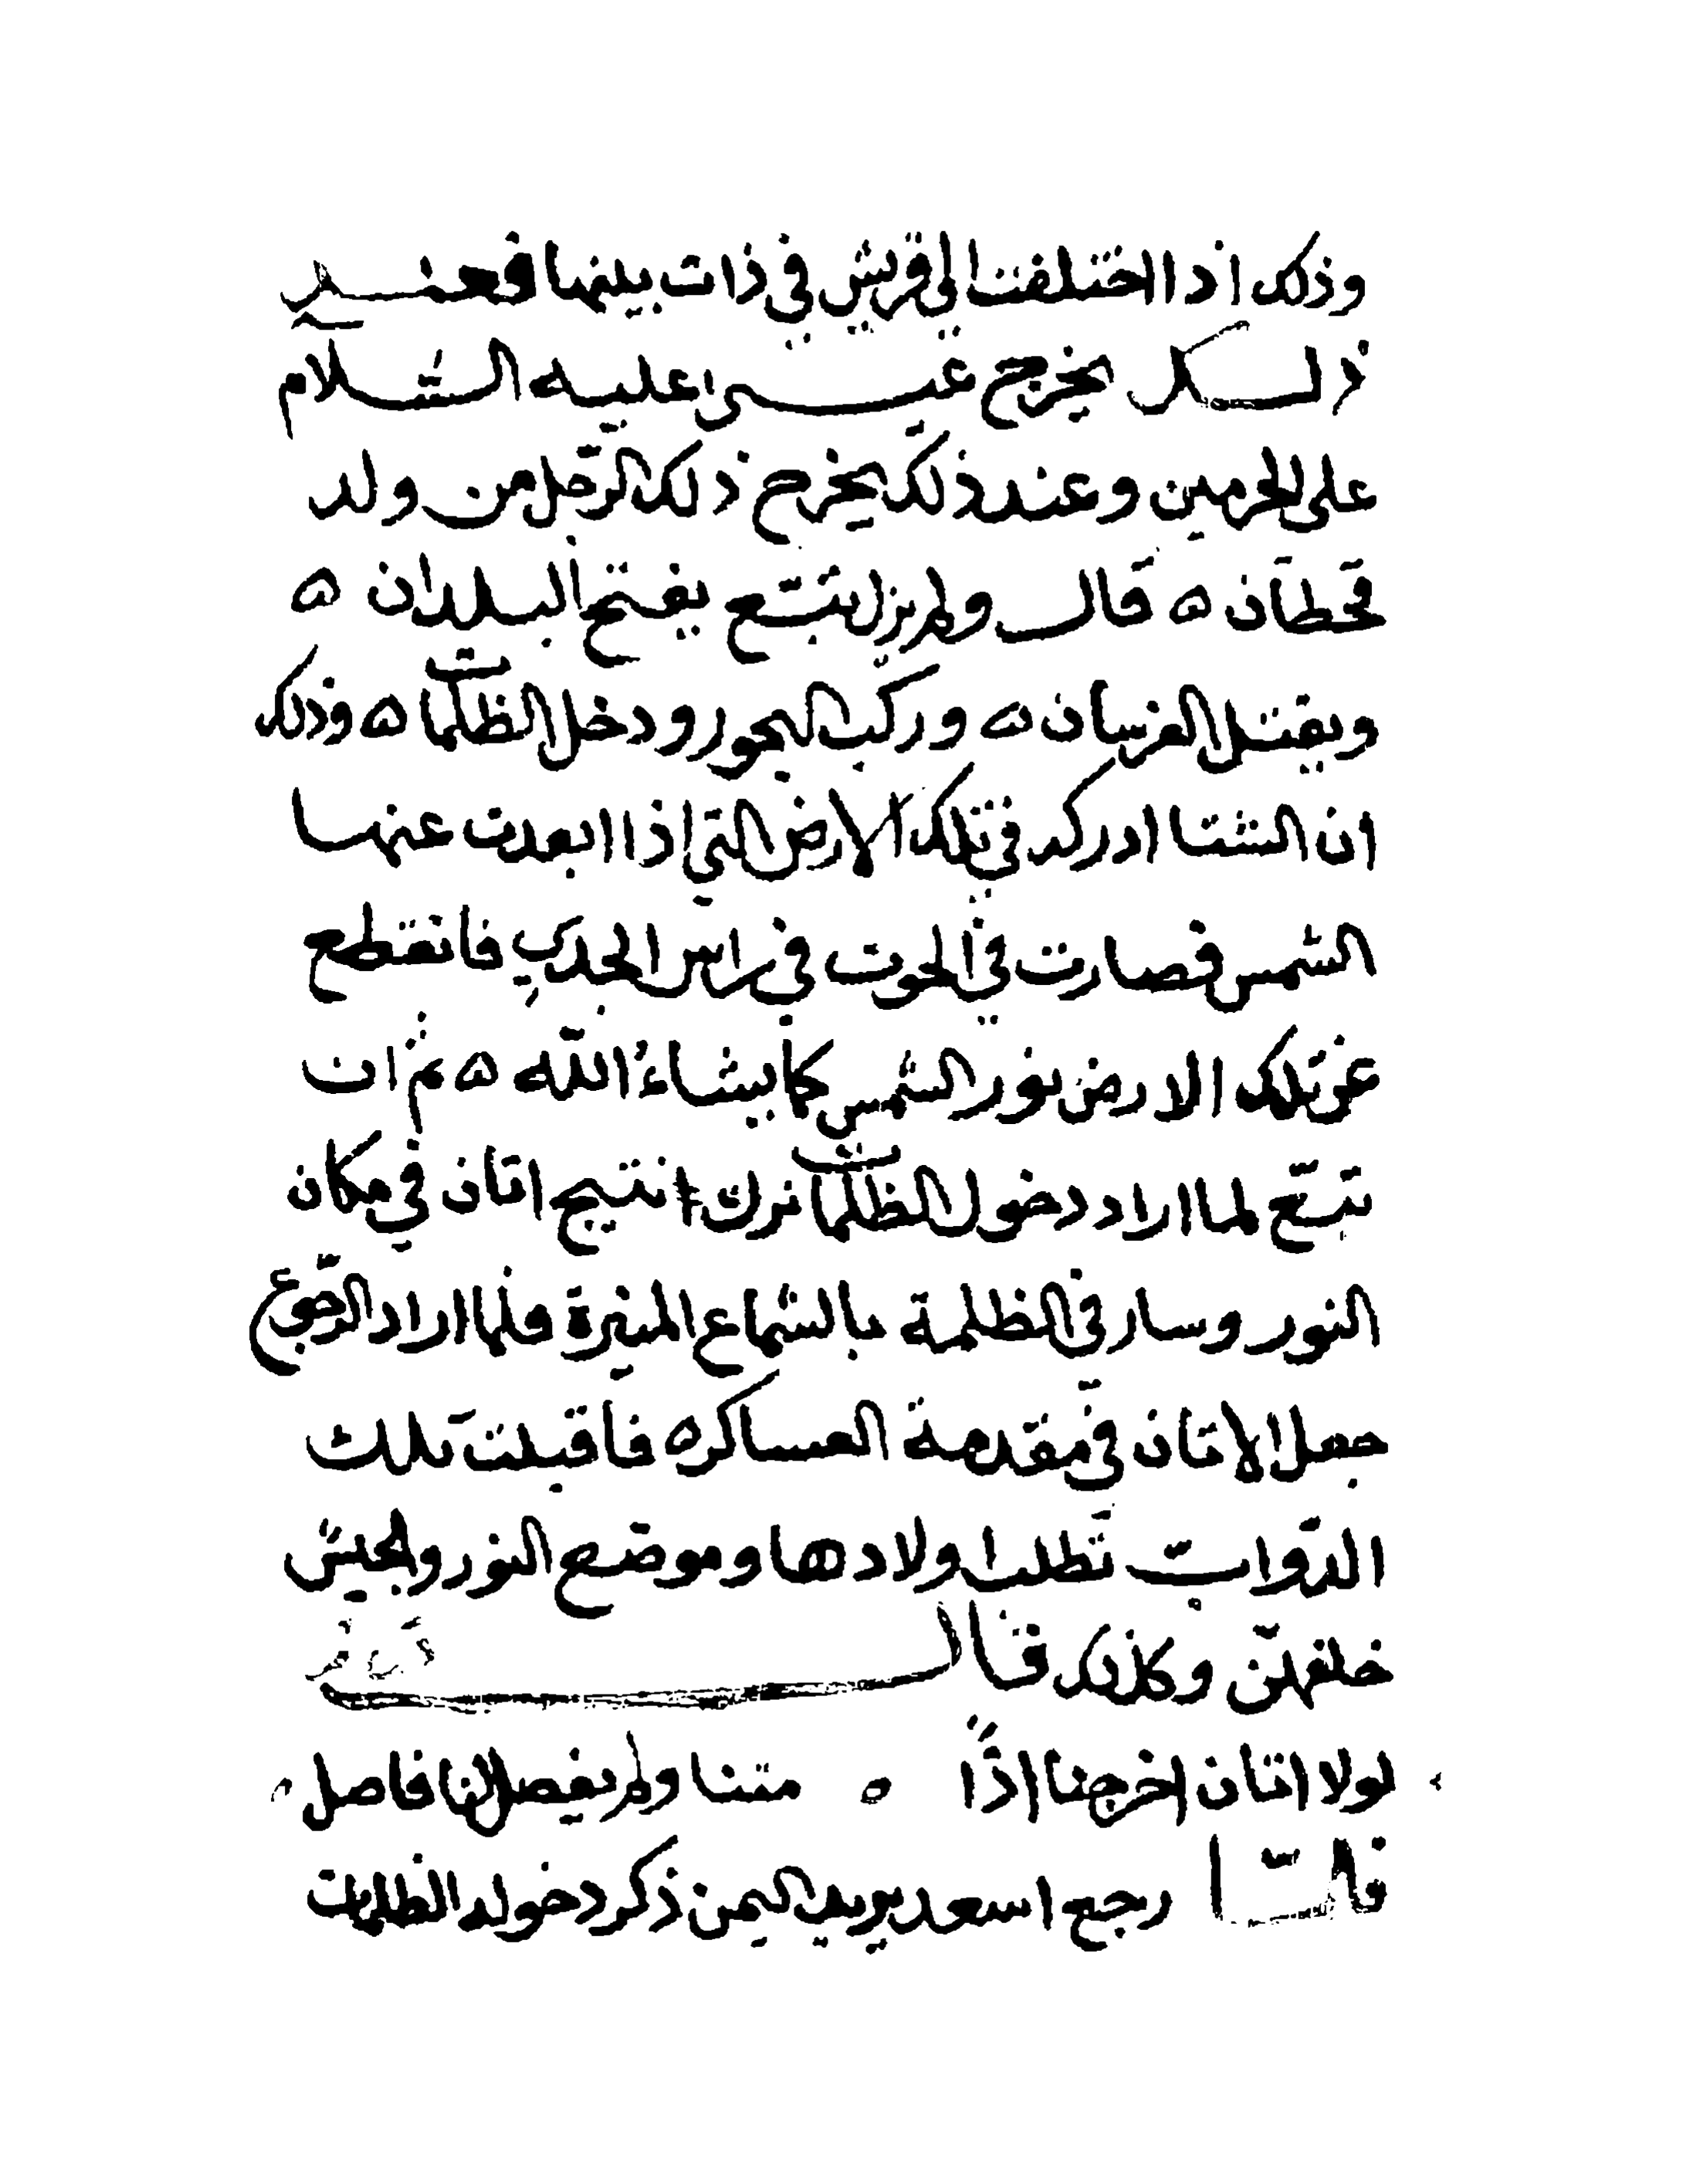 وذلك اذا اختلفت الي قريش في ذات بينها فعند
ذلك يخرج عيسى عليه السلام
على الحرمين وعند ذلك يخرج ذلك الرجل من ولد
قحطان ه قال ولم يزل تبتع يفتح البلدان ه
ويقتل الفرسان ه وركب البحور ودخل الظلمات ه وذلك
ان الشتا ادركه في تلك الارض التي اذا ابعدت عنها
الشمس فصارت في الحوت في راس الجدي فانقطع
عن تلك الارض نور الشمس كما يشاء الله ه ثم ان
تبتع لما اراد دخول الظلمات ترك نتيج اتان في مكان
النور وسار في الظلمة بالشماع المنيرة فلما اراد الرجوع
جعل الاتان في مقدمة العساكر ه فاقبلت تلك
الدواب تطلب اولادها وموضع النور والجيش
خلفهن وكذلك قال
لولا اتان اخرجنا اذا ه متنا ولم يفصل لنا فاصل ه
قال لما رجع اسعد يريد اليمن ذكر دخوله الظلمات